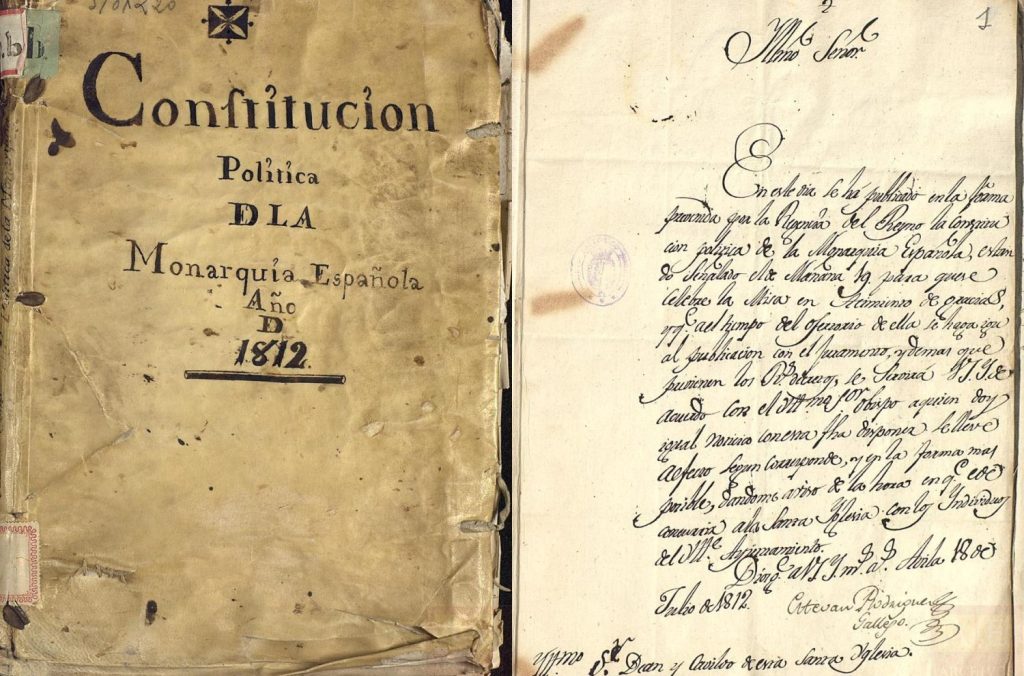 Constitucion
Politica
DLA
Monarquia Española
Año
D
1812
2
1
Yllmo Señor
En este dia se há publicado en la forma
prevenida por la Regencia del Reyno la Constitu
cion politica de la Monarquia Española, estan
do Señalado el de Mañana 19 para que se
Celebre la Misa en acimiento de gracias,
y q.e al tiempo del ofertorio de ella se haga igu
al publicacion con el Juramento, y demas que
previenen los R.s decretos, se Servirá V.S.Y. de
acuerdo con el Yttmo Sor Obispo a quien doy
igual noticia con esta fha disponer se lleve
a efecto segun corresponde, y en la forma mas
posible, dandome aviso de la hora en q.e é de
concurrir a la Santa Yglesia con los Individuos
del Ylle Ayuntamiento.
Dios g.e a V.S.Y. m.s a.s Avila 18 de
Julio de 1812.
Estevan Rodriguez
Gallego.
Yttmo Sr Dean y Cavildo de esta Santa Yglesia.